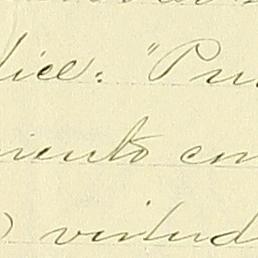 dice: "Pu
miento con
) virtud